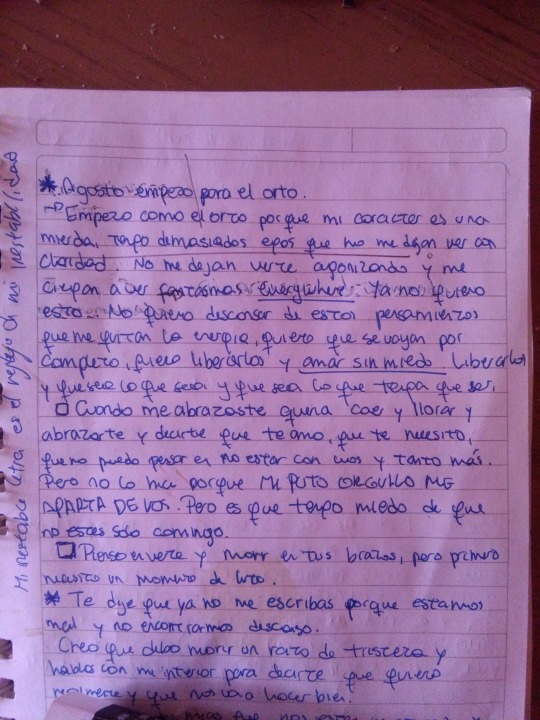 * Agosto empezo para el orto.
→ Empezo como el orto porque mi caracter es una
mierda, tengo demasiados egos que no me dejan ver con
claridad. No me dejan verte agonizando y me
a ver fantasmas everywhere. Ya no quiero
esto. No quiero descansar de estos pensamientos
que me quitan la energia, quiero que se vayan por
completo, quiero liberarlos y amar sin miedo. Liberarlos
y que sea lo que sea y que sea lo que tenga que ser.
□ Cuando me abrazaste queria caer y llorar y
abrazarte y decirte que te amo, que te necesito,
que no puedo pensar en no estar con vos y tanto más.
Pero no lo hice porque MI PUTO ORGULLO ME
APARTA DE VOS. Pero es que tengo miedo de que
no estes solo conmigo.
□ Pienso en verte y morir en tus brazos, pero primero
necesito un momento de luto.
* Te dije que ya no me escribas porque estamos
mal y no encontramos descanso.
Creo que debo morir un ratito de tristeza y
hablar con mi interior para decirte que quiero
realmente y que nos va a hacer bien.
Mi letra es el reflejo de mi inestabilidad